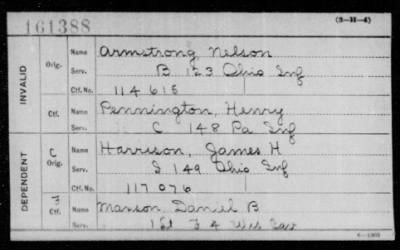 161388
(3-H-4)
INVALID
Orig.
Name Armstrong Nelson
Serv. B 123 Ohio Inf
Ctf. No. 114618
Ctf.
Name Pennington, Henry
Serv. C 148 Pa Inf
DEPENDENT
C
Orig.
Name Harrison, James H
Serv. I 149 Ohio Inf
Ctf. No. 117076
Ctf.
Name Manson, Daniel B
Serv. 1 Lt F 4 Wis Cav